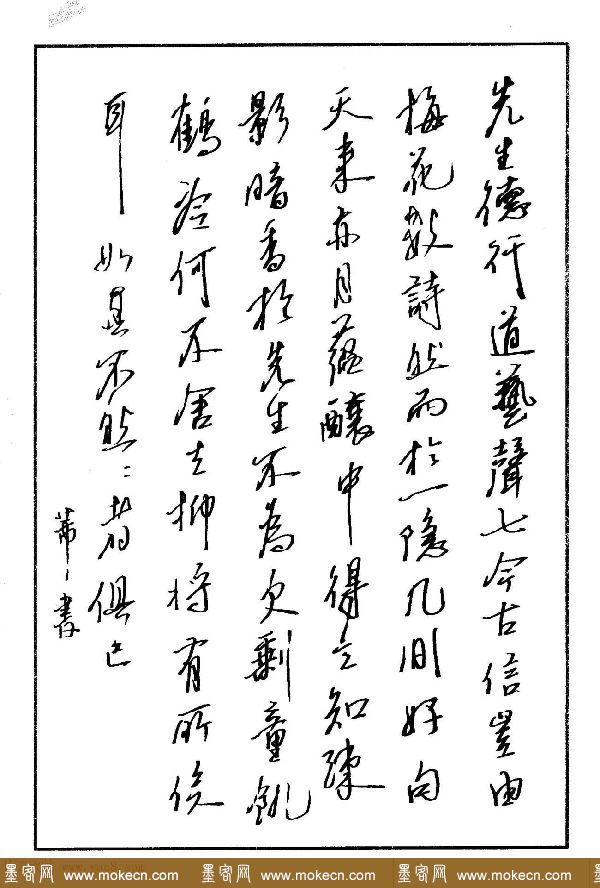 先生德行道藝聲七今古信豈由
梅花數詩然而於一隐几間好句
天来亦自蕴釀中得之知疎
影暗香於先生不為欠剩童飢
鶴冷何不舍去抑将有所俟
耳 如其不然
書
墨客网 www.mokecn.com 墨客网 www.mokecn.com 墨客网 www.mokecn.com